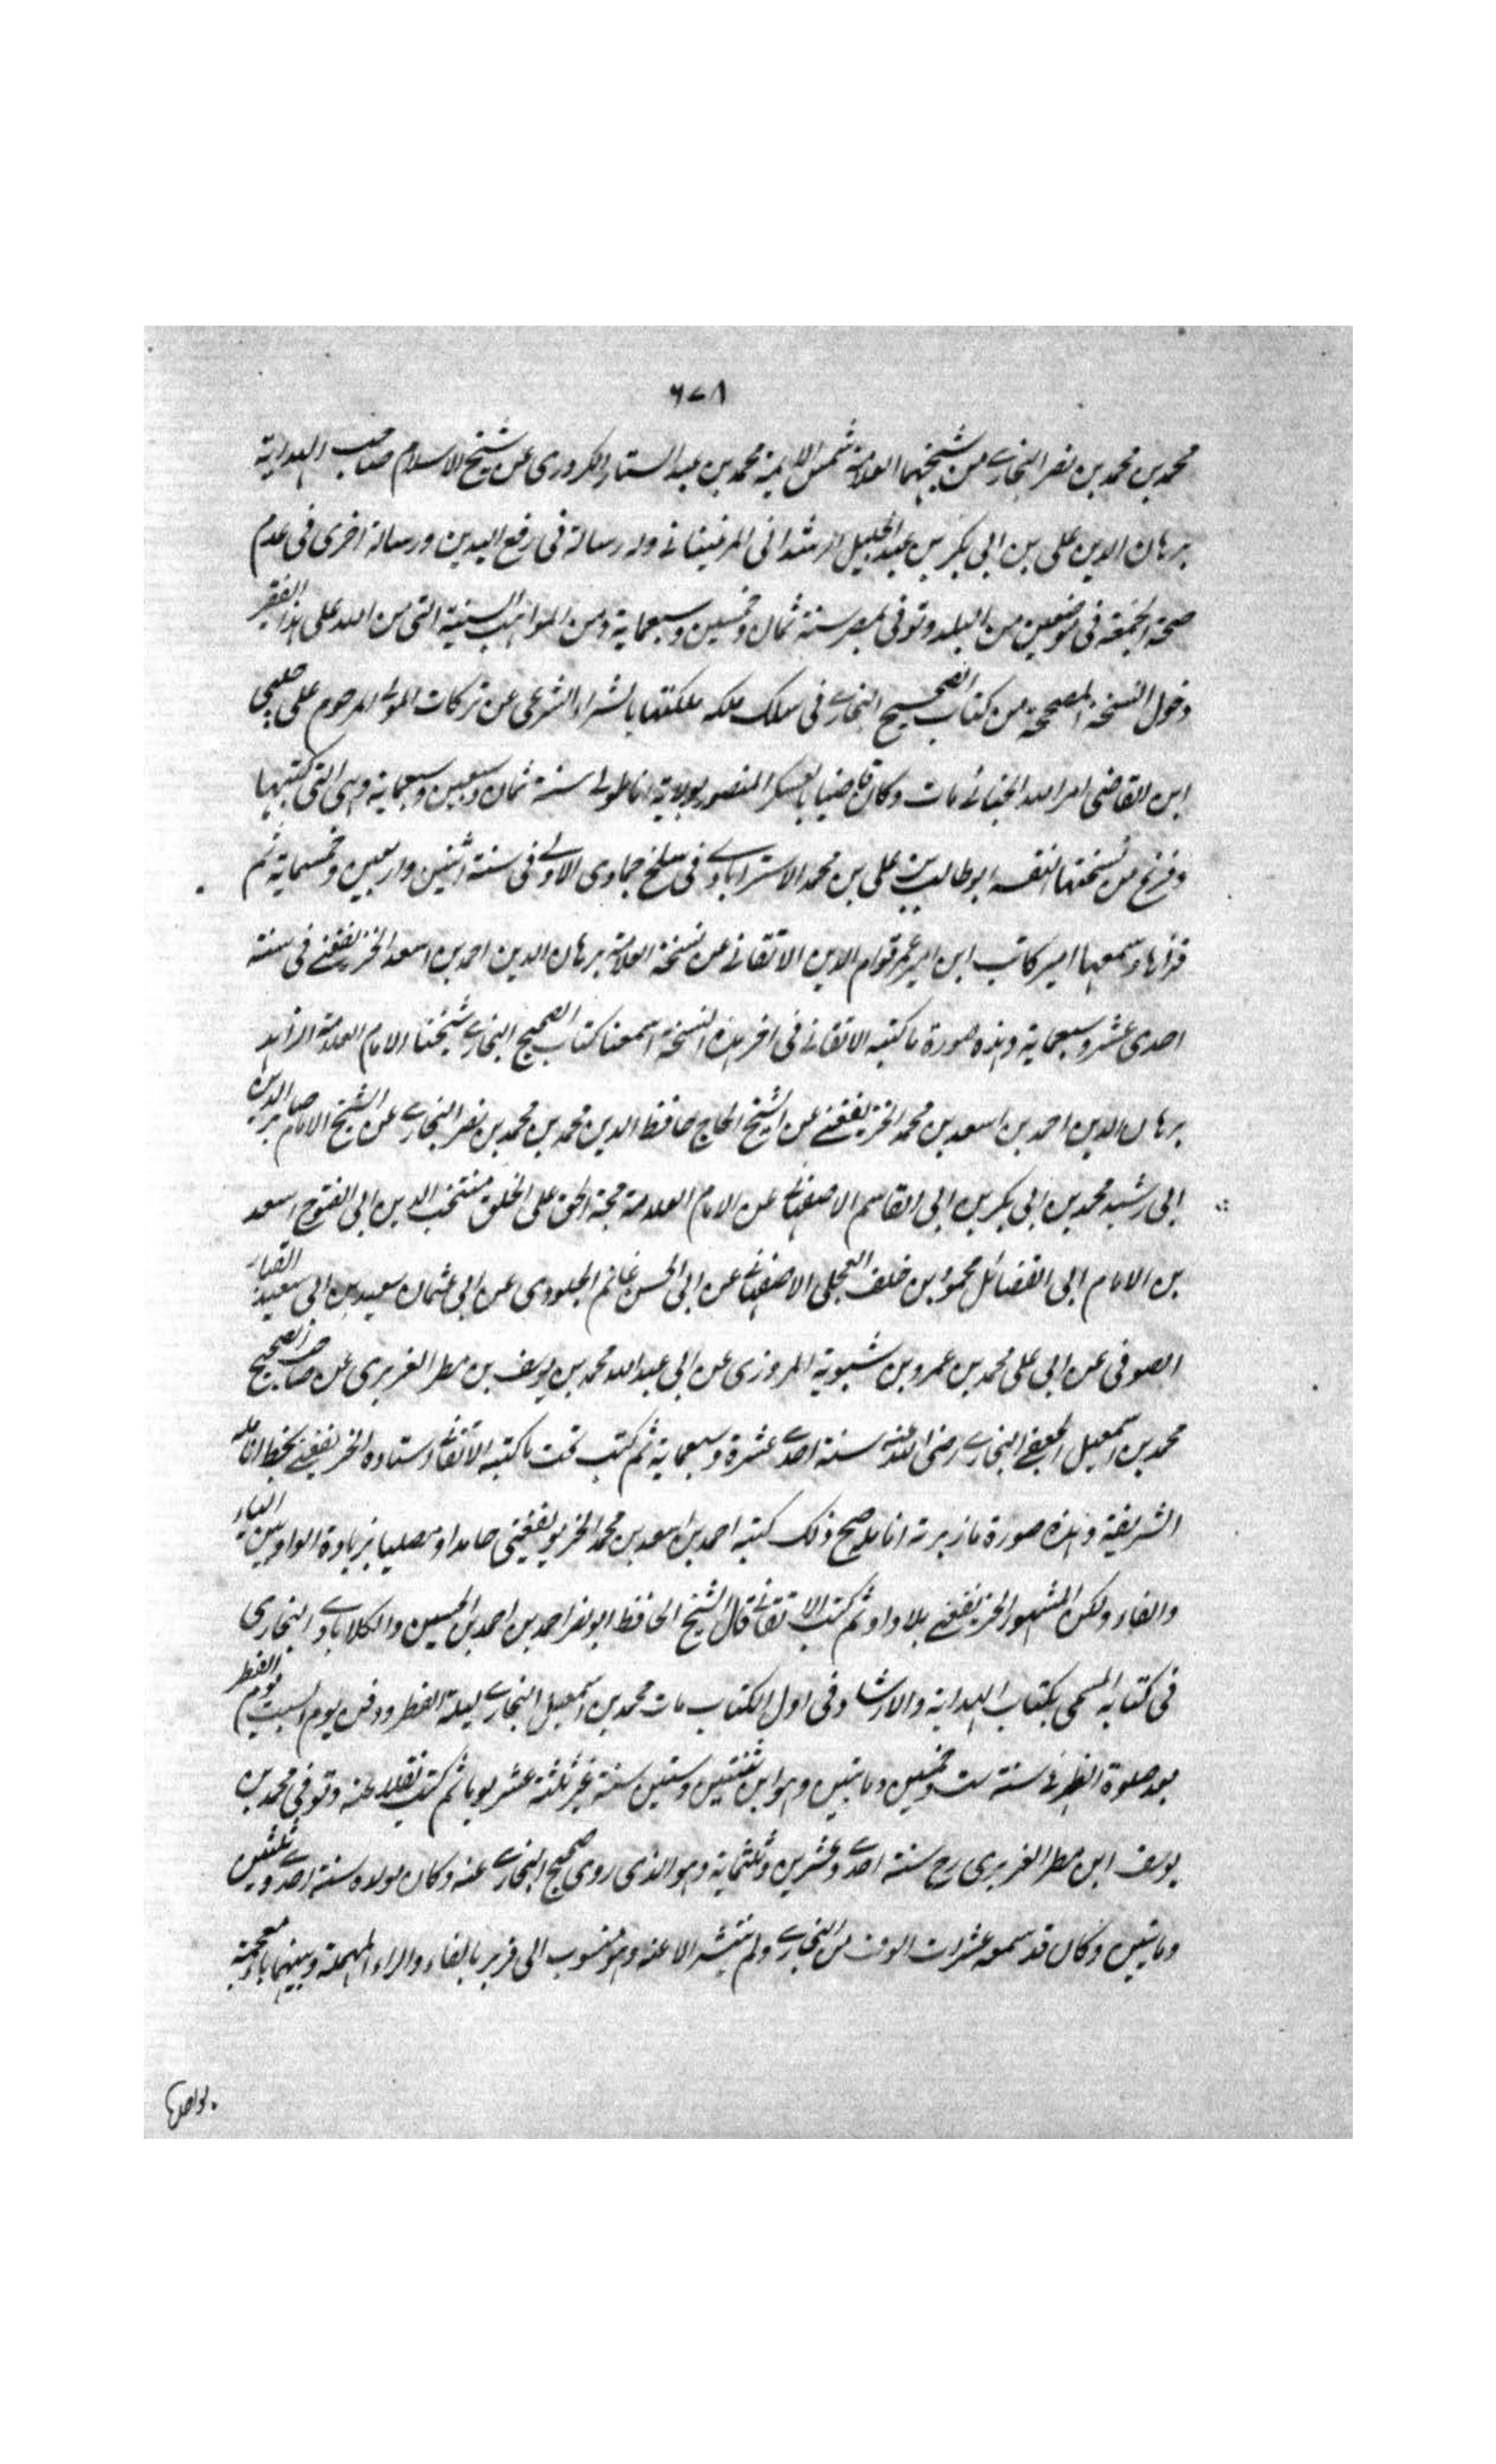 ٦٧٨
محمد بن محمد بن نصر البخارى من شيخهما العلامة شمس الايمة محمد بن عبد الستار الكردرى عن شيخ الاسلام صاحب الهداية
برهان الدين على بن ابى بكر بن عبد الجليل الرشدانى المرغينانى وله رسالة فى رفع اليدين ورسالة اخرى فى عدم
صحة الجمعة فى موضعين من البلد وتوفى بمصر سنة ثمان وخمسين وسبعماية ومن المواهب السنية التى من الله على هذا الفقير
دخول النسخة المصححة من كتاب الصحيح البخارى فى سلك ملكه ملكتها بالشراء الشرعى عن تركات المولى المرحوم على چلبى
ابن القاضى امر الله الحنائى مات وكان قاضيا بالعسكر المنصور بولاية اناطولى سنة ثمان وسبعين وسبعماية وهى التى كتبها
وفرغ من نسختها لنفسه ابو طالب بن على بن محمد الاسترابادى فى سلخ جمادى الاولى فى سنة اثنين واربعين وخمسماية ثم
قراها وسمعها امير كاتب ابن امير عمر قوام الدين الاتقانى عن نسخة العلامة برهان الدين احمد بن اسعد الخريفغنى فى سنة
احدى عشر وسبعماية وهذه صورة ما كتبه الاتقانى فى اخر هذه النسخة اسمعنا كتاب الصحيح البخارى شيخنا الامام العلامة الزاهد
برهان الدين احمد بن اسعد بن محمد الخريفغنى عن الشيخ الحاج حافظ الدين محمد بن محمد بن نصر البخارى عن الشيخ الامام الدين
ابى رشيد محمد بن ابى بكر بن ابى القاسم الاصفهانى عن الامام العلامة حجة الحق على الخلق منتخب الدين ابى الفتوح اسعد
بن الامام ابى الفضائل محمود بن خلف العجلى الاصفهانى عن ابى الحسن غانم الجلودى عن ابى عثمان سعيد بن ابى سعيد العيار
الصوفى عن ابى على محمد بن عمرو بن شبوية المروزى عن ابى عبد الله محمد بن يوسف بن مطر الفربرى عن صاحب الصحيح
محمد بن اسمعيل الجعفى البخارى رضى الله عنه سنة احدى عشرة وسبعماية ثم كتب تحت ما كتبه الاتقانى استاده الخريفغنى بخط انامله
الشريفة وهذه صورة ما زبرته انامله صح ذلك كتبه احمد بن اسعد بن محمد الخريويفغنى حامدا ومصليا بزيادة الواو بين الياء
والفاء ولكن المشهور الخريفغنى بلا واو ثم كتب الاتقانى قال الشيخ الحافظ ابو نصر احمد بن احمد بن الحسين والكلابادى البخارى
فى كتابه المسمى بكتاب الهداية والارشاد وفى اول الكتاب مات محمد بن اسمعيل البخارى ليلة الفطر ودفن يوم السبت يوم الفطر
بعد صلوة الظهر فى سنة ست وخمسين وماتين وهو ابن ثنتين وستين سنة غير ثلثة عشر يوما ثم كتب نقلا عنه وتوفى محمد بن
يوسف ابن مطر الفربرى رح سنة احدى وعشرين وثلثماية وهو الذى روى صحيح البخارى عنه وكان مولده سنة احدى وثلثين
وماتين وكان قد سمعه عشرات الوف من البخارى ولم ينتشر الا عنه وهو منسوب الى فربر بالفاء والراء المهملة وبينهما باء معجمة
بواحدة